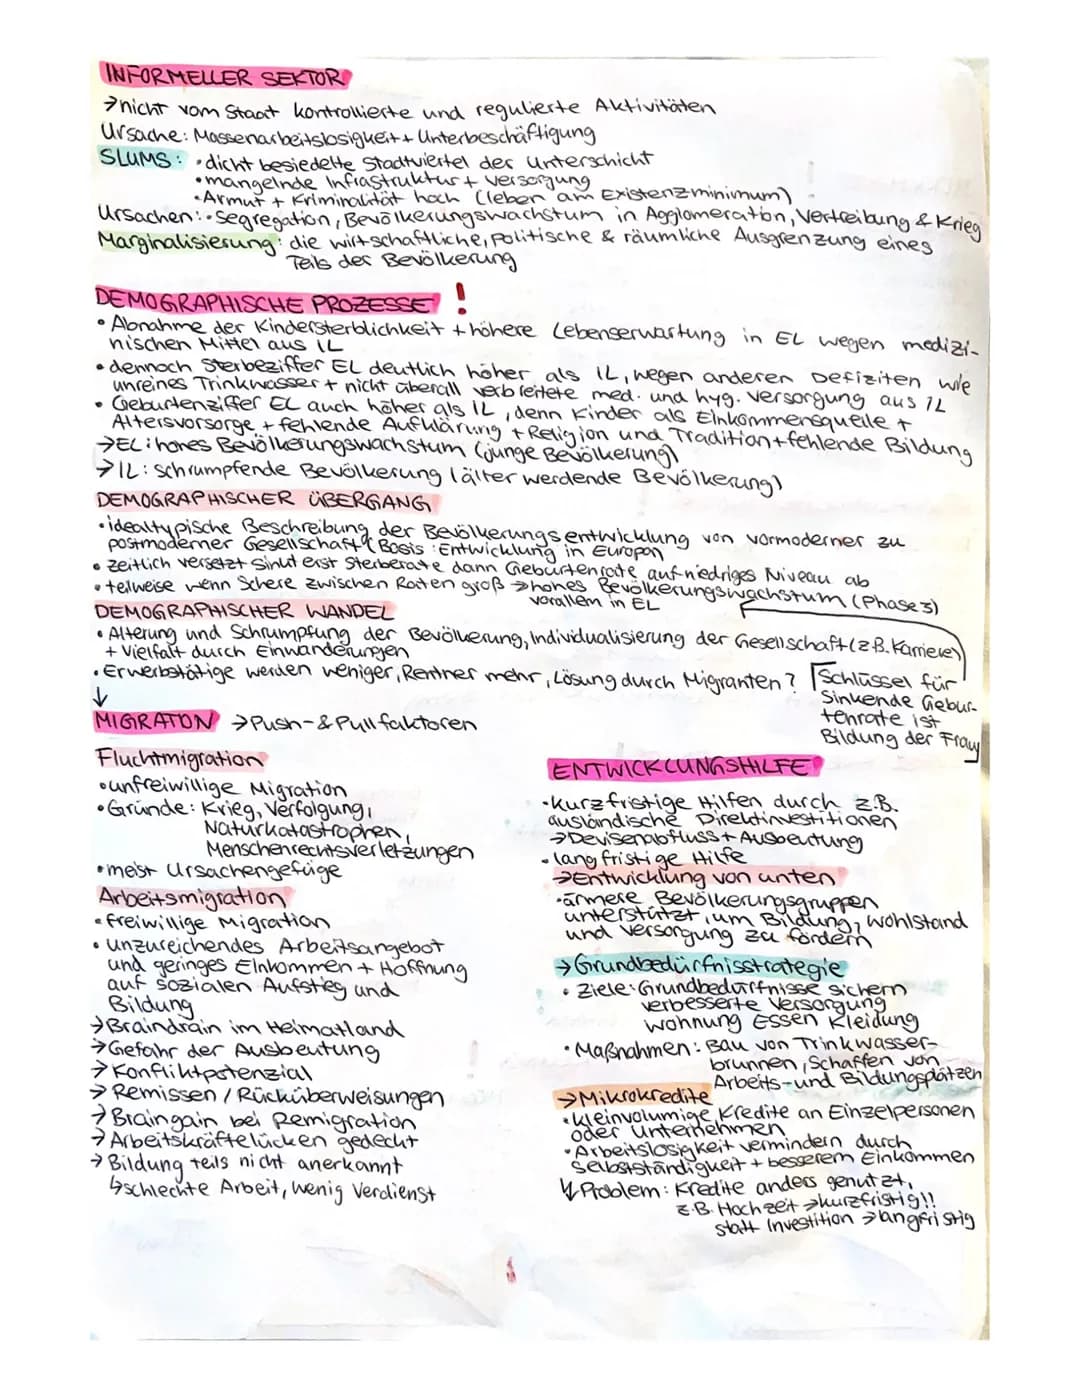 INFORMELLER SEKTOR
→nicht vom Staat kontrollierte und regulierte Aktivitäten
Ursache: Massenarbeitslosigkeit + Unterbeschäftigung
SLUMS: •dicht besiedelte Stadtviertel der Unterschicht
•mangelnde Infrastruktur + Versorgung
•Armut + Kriminalität hoch (leben am Existenzminimum)
Ursachen: •Segregation, Bevölkerungswachstum in Agglomeration, Vertreibung & Krieg
Marginalisierung: die wirtschaftliche, politische & räumliche Ausgrenzung eines
Teils der Bevölkerung
DEMOGRAPHISCHE PROZESSE !
• Abnahme der Kindersterblichkeit + höhere Lebenserwartung in EL wegen medizi-
nischen Mittel aus IL
• dennoch Sterbeziffer EL deutlich höher als IL, wegen anderen Defiziten wie
unreines Trinkwasser + nicht überall verbreitete med. und hyg. Versorgung aus IL
• Geburtenziffer EL auch höher als IL, denn Kinder als Einkommensquelle +
Altersvorsorge + fehlende Aufklärung + Religion und Tradition + fehlende Bildung
→EL: hohes Bevölkerungswachstum (junge Bevölkerung)
→IL: schrumpfende Bevölkerung (älter werdende Bevölkerung)
DEMOGRAPHISCHER ÜBERGANG
•idealtypische Beschreibung der Bevölkerungsentwicklung von vormoderner zu
postmoderner Gesellschaft (Basis: Entwicklung in Europa)
• zeitlich versetzt sinkt erst Sterberate dann Geburtenrate auf niedriges Niveau ab
• teilweise wenn Schere zwischen Raten groß →hohes Bevölkerungswachstum (Phase 3)
vorallem in EL
DEMOGRAPHISCHER WANDEL
• Alterung und Schrumpfung der Bevölkerung, Individualisierung der Gesellschaft (z.B. Karriere)
+ Vielfalt durch Einwanderungen
• Erwerbstätige werden weniger, Rentner mehr, Lösung durch Migranten?
Schlüssel für
sinkende Gebur-
tenrate ist
Bildung der Frau
↓
MIGRATON →Push-& Pullfaktoren
Fluchtmigration
•unfreiwillige Migration
•Gründe: Krieg, Verfolgung,
Naturkatastrophen,
Menschenrechtsverletzungen
•meist Ursachengefüge
Arbeitsmigration
• freiwillige Migration
• unzureichendes Arbeitsangebot
und geringes Einkommen + Hoffnung
auf sozialen Aufstieg und
Bildung
→Braindrain im Heimatland
→Gefahr der Ausbeutung
→Konfliktpotenzial
→Remissen / Rücküberweisungen
→Braingain bei Remigration
→Arbeitskräftelücken gedeckt
→Bildung teils nicht anerkannt
↳schlechte Arbeit, wenig Verdienst
ENTWICKLUNGSHILFE
•kurzfristige Hilfen durch z.B.
ausländische Direktinvestitionen
→Devisenabfluss + Ausbeutung
• langfristige Hilfe
→Entwicklung von unten
•ärmere Bevölkerungsgruppen
unterstützt, um Bildung, Wohlstand
und Versorgung zu fördern
→Grundbedürfnisstrategie
• Ziele: Grundbedürfnisse sichern
verbesserte Versorgung
Wohnung Essen Kleidung
•Maßnahmen: Bau von Trinkwasser-
brunnen, Schaffen von
Arbeits- und Bildungsplätzen
→Mikrokredite
•kleinvolumige Kredite an Einzelpersonen
oder Unternehmen
•Arbeitslosigkeit vermindern durch
Selbstständigkeit + besserem Einkommen
Problem: Kredite anders genutzt,
z.B. Hochzeit →kurzfristig!!
statt Investition →langfristig